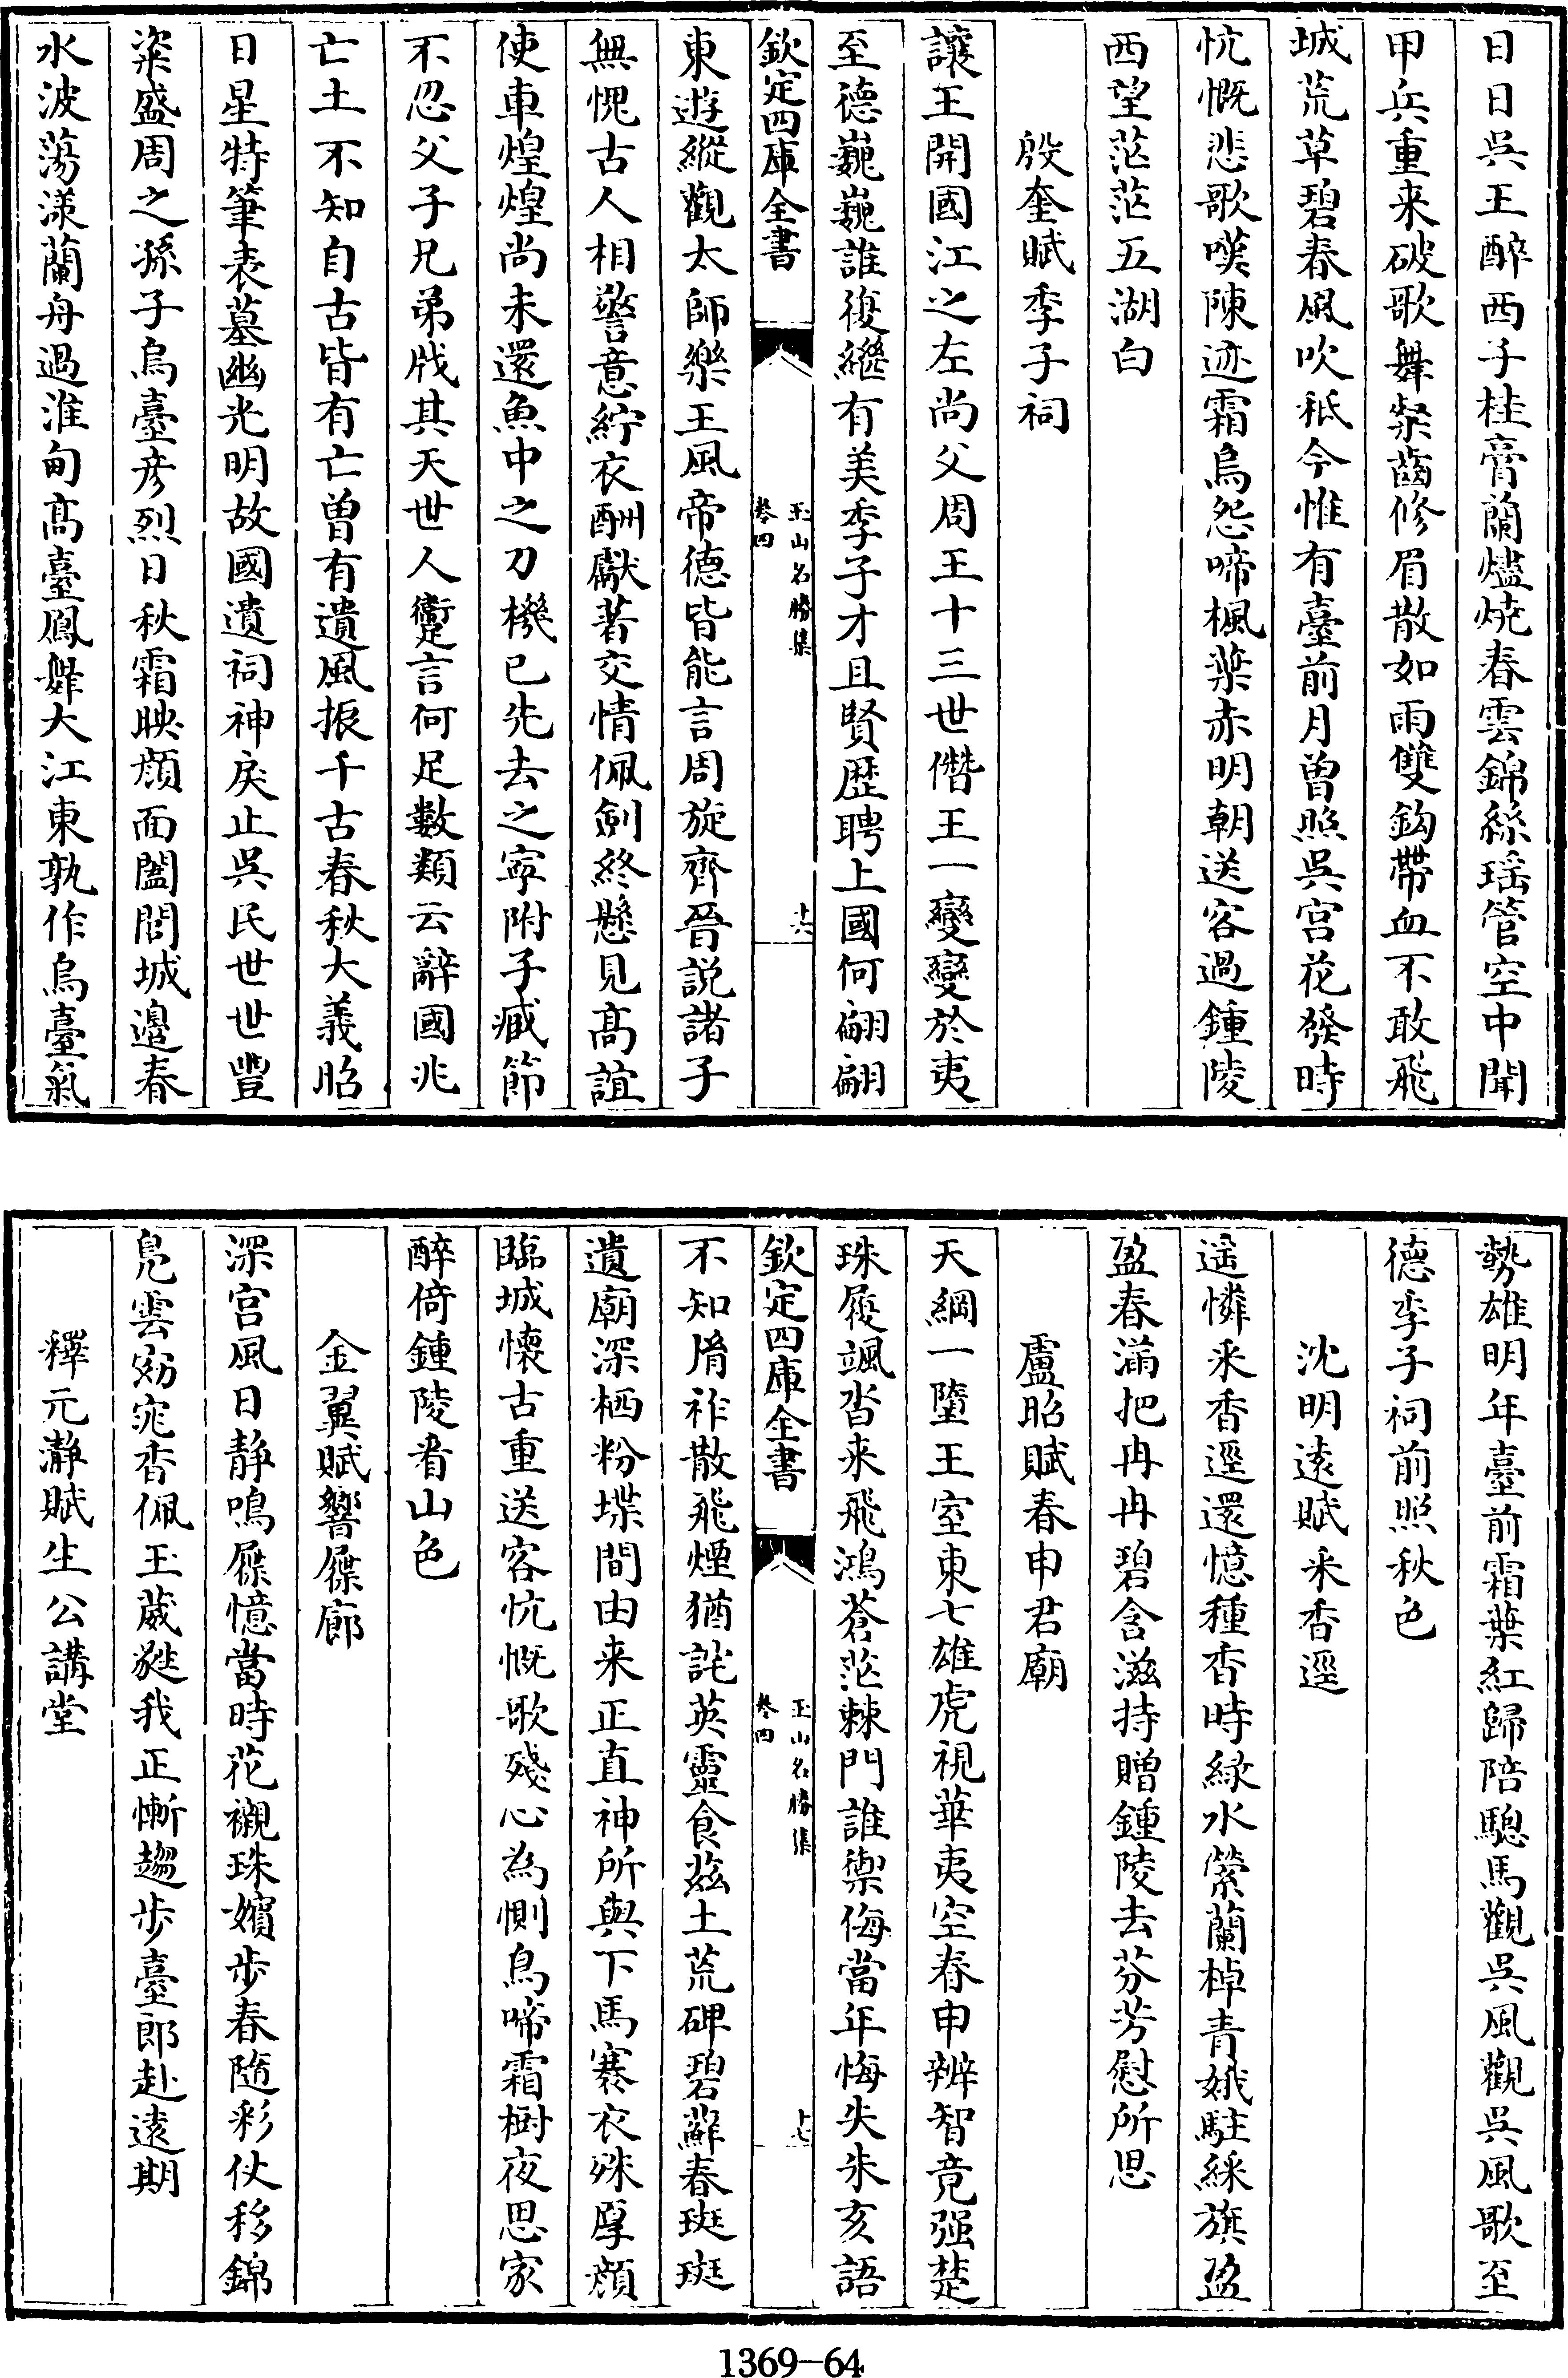 日日吳王醉西子桂膏蘭燼燒春雲錦絲瑶管空中聞
甲兵重来破歌舞粲齒修眉散如雨雙鈎帶血不敢飛
城荒草碧春風吹秪今惟有臺前月曾照吳宫花發時
忼慨悲歌嘆陳迹霜烏怨啼楓葉赤明朝送客過鍾陵
西望茫茫五湖白
殷奎賦季子祠
讓王開國江之左尚父周王十三世僭王一變變於夷
至德巍巍誰復繼有美季子才且賢歴聘上國何翩翩
欽定四庫全書
玉山名勝集
卷四
十六
東遊縱觀太師樂王風帝德皆能言周旋齊晉説諸子
無愧古人相警意紵衣酬獻著交情佩劍終懸見髙誼
使車煌煌尚未還魚中之刀機已先去之寧附子臧節
不忍父子兄弟戕其天世人躗言何足數類云辭國兆
亡土不知自古皆有亡曾有遺風振千古春秋大義昭
日星特筆表墓幽光明故國遺祠神戾止吳民世世豐
粢盛周之孫子烏臺彦烈日秋霜映顔面闔閭城邉春
水波蕩漾蘭舟過淮甸髙臺鳳舞大江東孰作烏臺氣
勢雄明年臺前霜葉紅歸陪驄馬觀吳風觀吳風歌至
德季子祠前照秋色
沈明遠賦采香逕
遥憐采香逕還憶種香時緑水縈蘭棹青娥駐綵旗盈
盈春滿把冉冉碧含滋持贈鍾陵去芬芳慰所思
盧昭賦春申君廟
天綱一墮王室東七雄虎視華夷空春申辨智竟强楚
珠履颯沓来飛鴻蒼茫棘門誰禦侮當年悔失朱亥語
欽定四庫全書
玉山名勝集
卷四
十七
不知脩祚散飛煙猶詫英靈食兹土荒碑碧蘚春斑斑
遺廟深栖粉堞間由来正直神所與下馬褰衣殊厚顔
臨城懷古重送客忼慨歌殘心為惻烏啼霜樹夜思家
醉倚鍾陵看山色
金翼賦響屧廊
深宫風日静鳴屧憶當時花襯珠嬪步春随彩仗移錦
鳬雲窈窕香佩玉葳蕤我正慚趨步臺郎赴遠期
釋元瀞賦生公講堂
1369-64